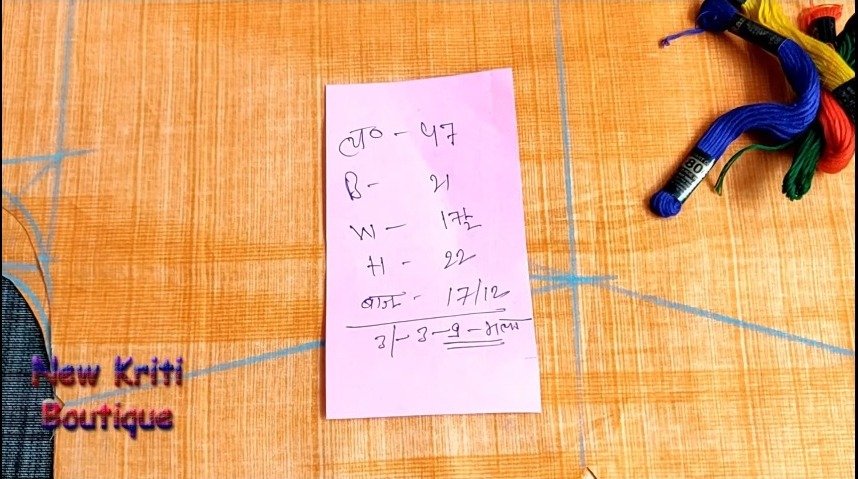 ल० - 47
B - 21
W - 17½
H - 22
बाजू - 17/12
3/- 3 - 9 - गला
New Kriti
Boutique
80